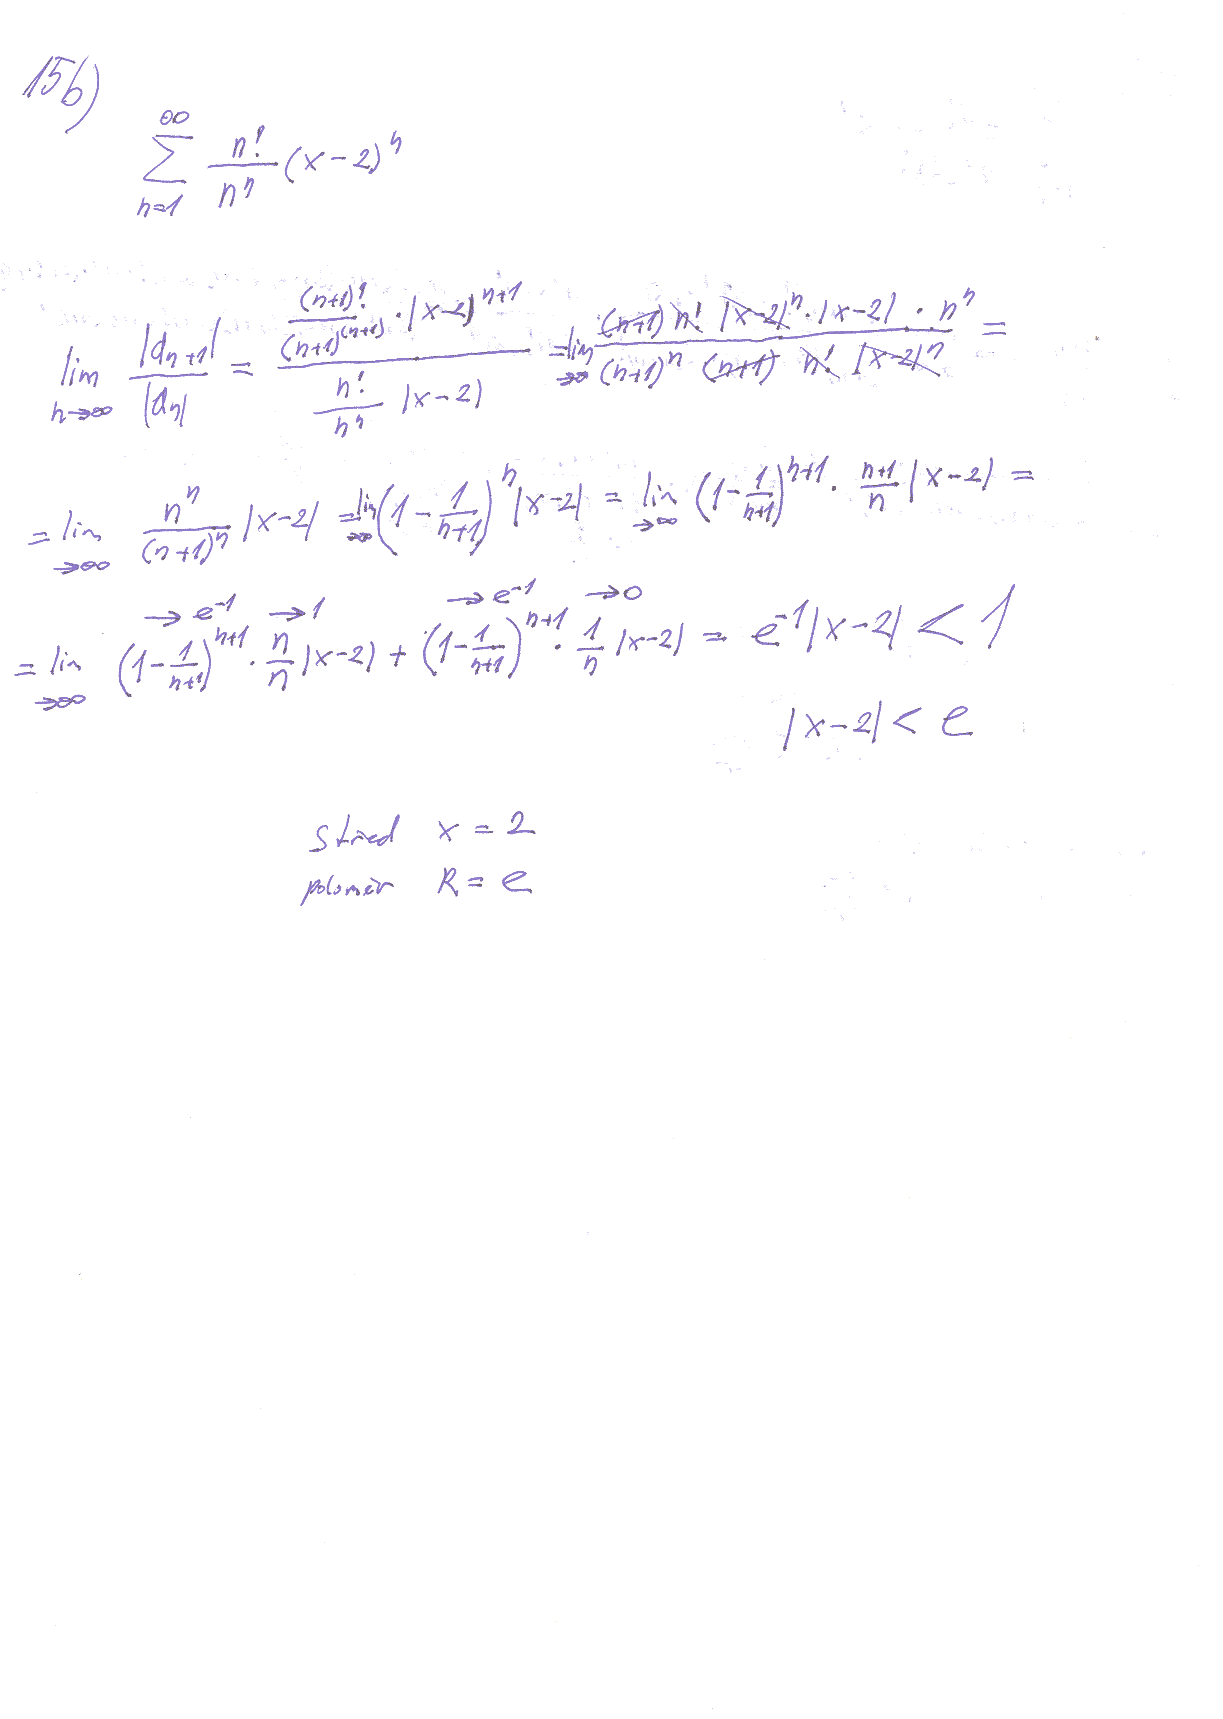 15b)
∞
∑ n!/nⁿ (x-2)ⁿ
n=1
lim n→∞ |a_{n+1}|/|a_n| = ((n+1)!/(n+1)^{(n+1)} · |x-2|^{n+1})/(n!/nⁿ |x-2|) = lim →∞ ((n+1) n! |x-2|ⁿ · |x-2| · nⁿ)/((n+1)ⁿ (n+1) n! |x-2|ⁿ) =
= lim →∞ nⁿ/(n+1)ⁿ |x-2| = lim →∞ (1 - 1/(n+1))ⁿ |x-2| = lim →∞ (1 - 1/(n+1))^{n+1} · (n+1)/n |x-2| =
→ e⁻¹ → 1 → e⁻¹ → 0
= lim →∞ (1 - 1/(n+1))^{n+1} · n/n |x-2| + (1 - 1/(n+1))^{n+1} · 1/n |x-2| = e⁻¹|x-2| < 1
|x-2| < e
střed x = 2
poloměr R = e